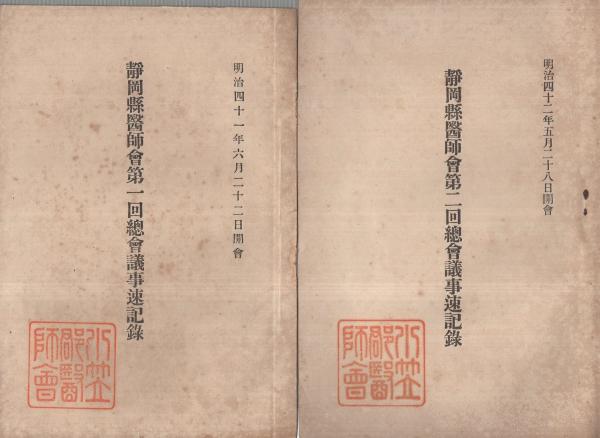 明治四十一年六月二十二日開會
靜岡縣醫師會第一回總會議事速記錄
小笠
郡醫
師會
明治四十二年五月二十八日開會
靜岡縣醫師會第二回總會議事速記錄
小笠
郡醫
師會